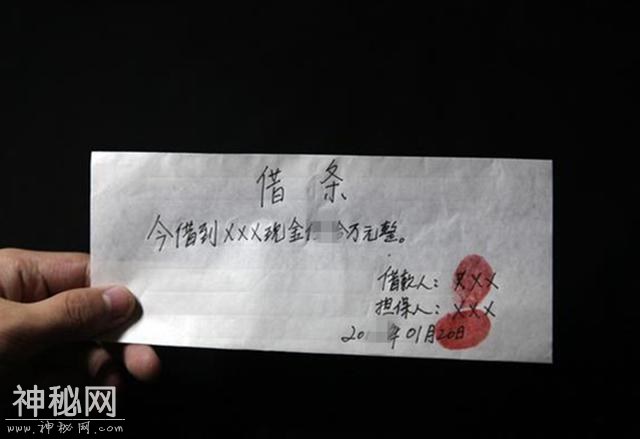 借条
今借到XXX现金 万元整。
借款人：XXX
担保人：XXX
20 年01月20日
神秘网
www.神秘网.com